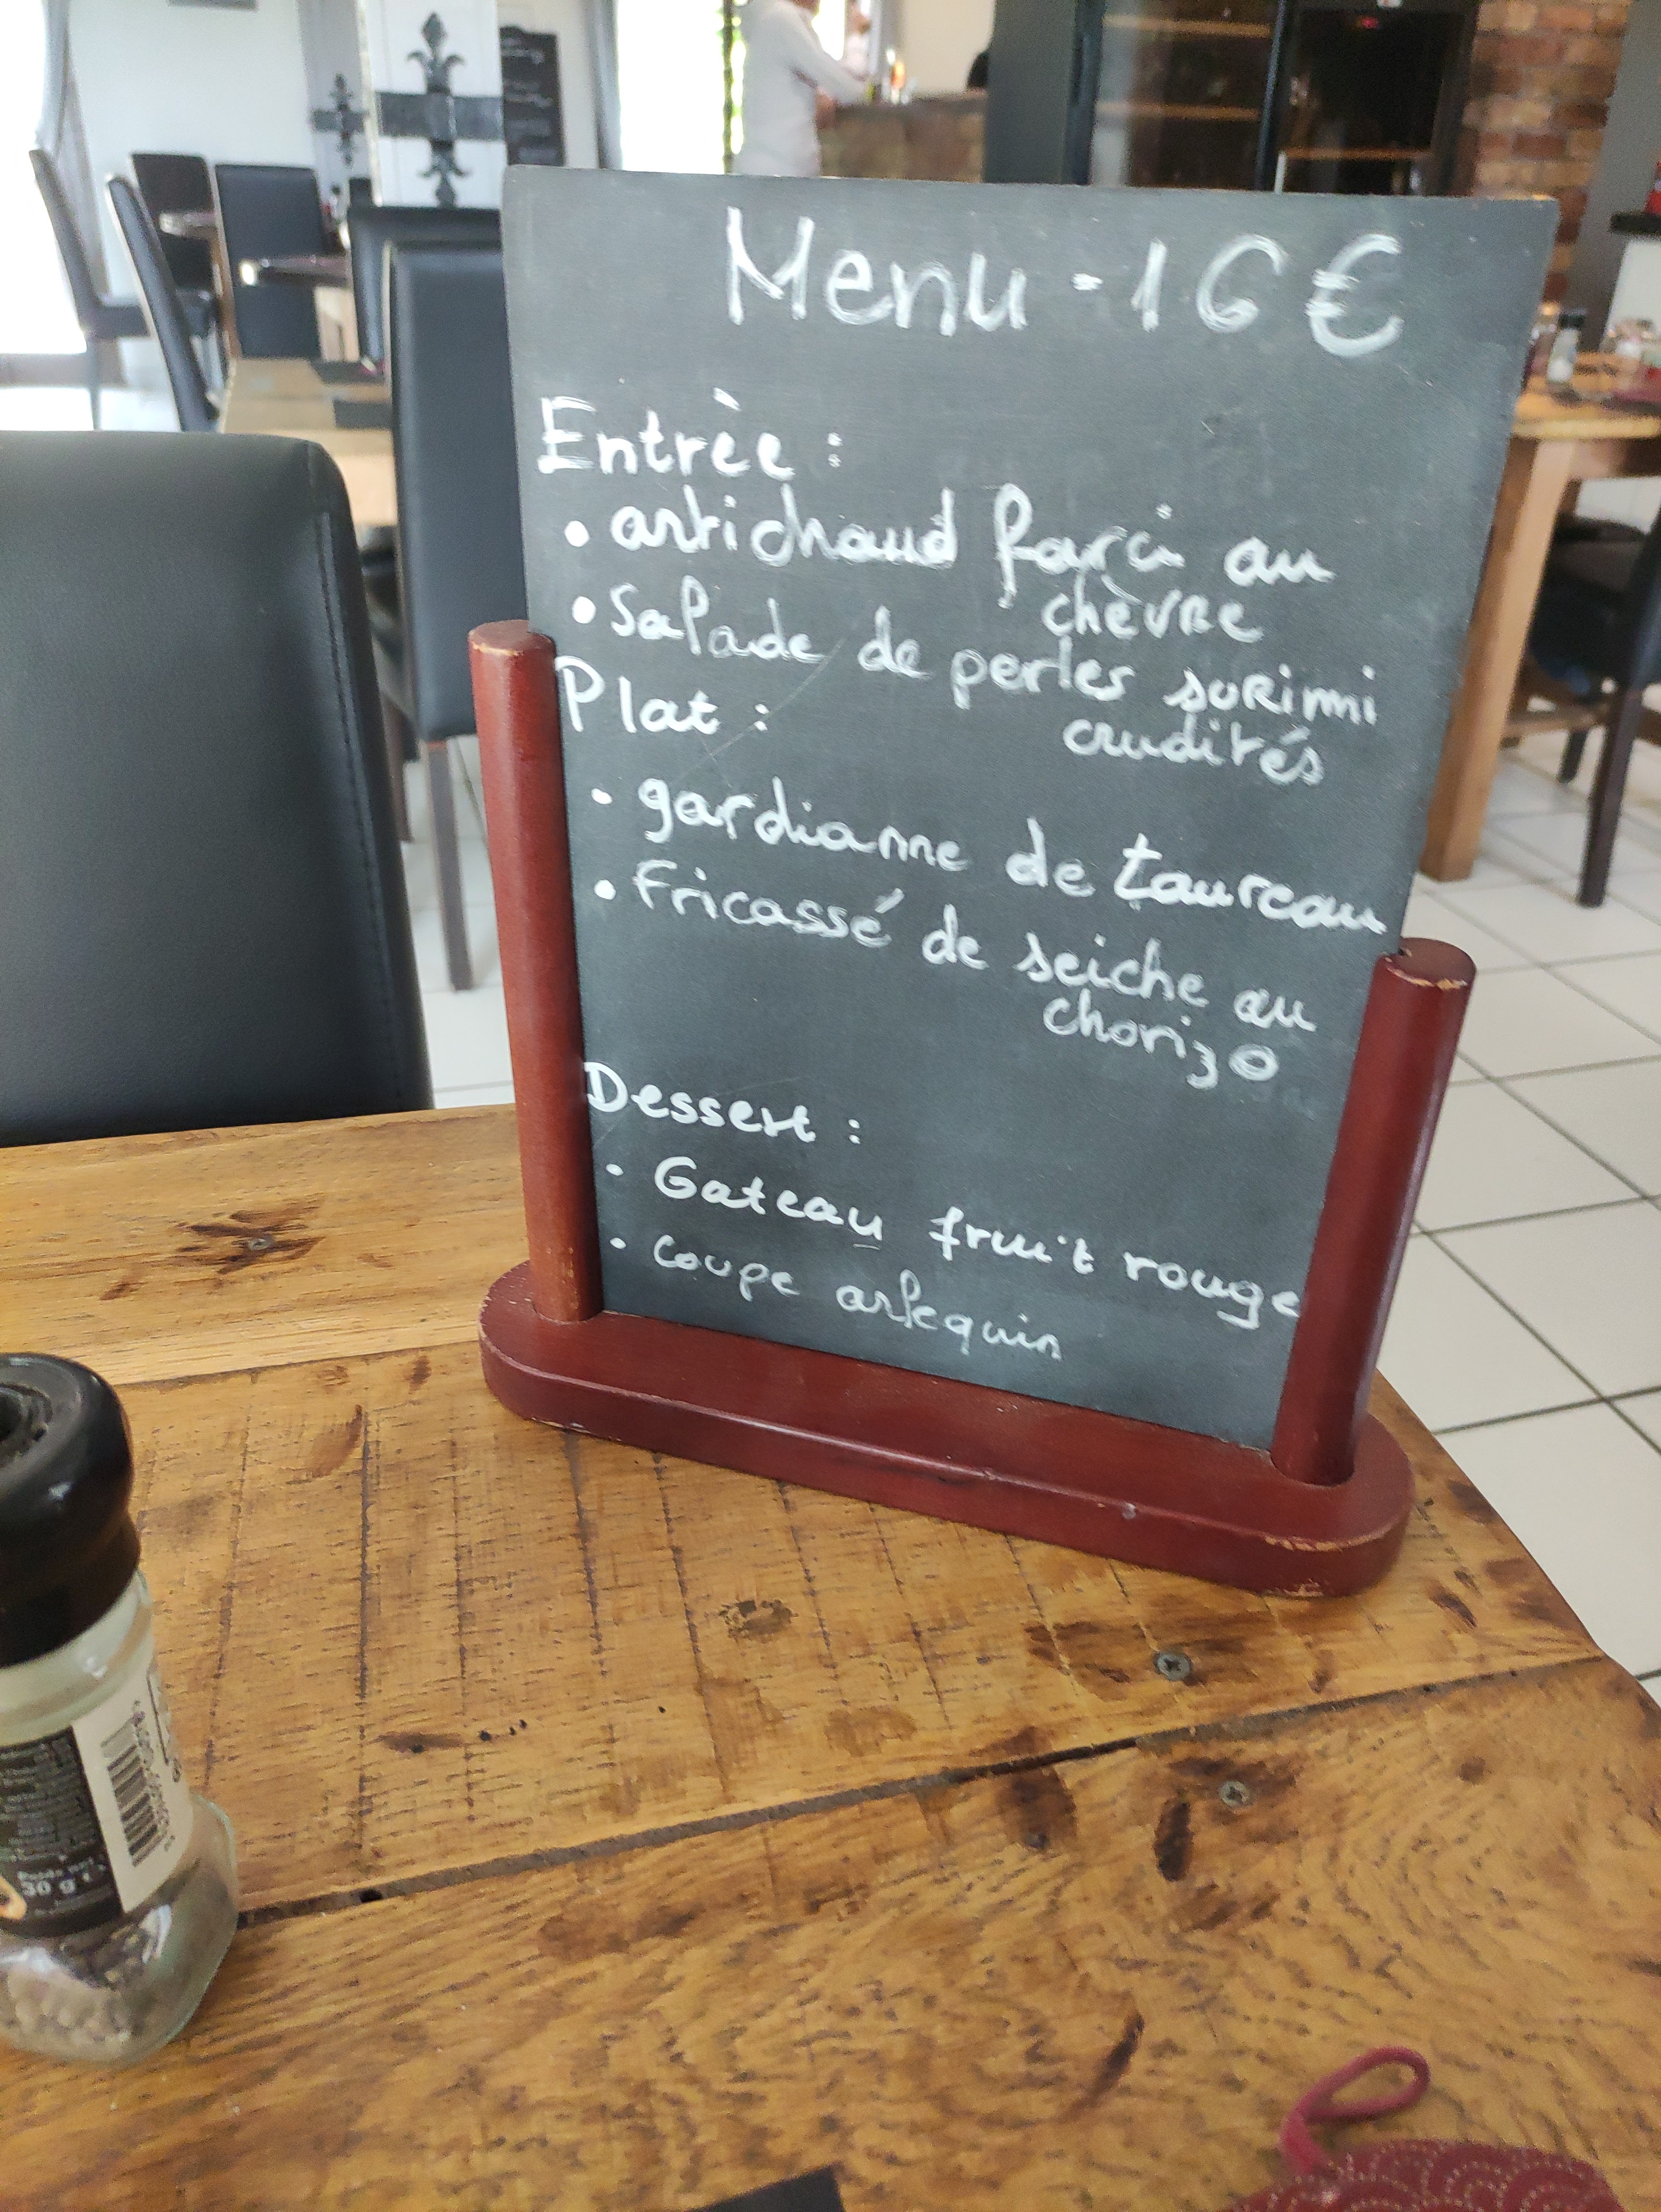 Menu - 16 €
Entrèe :
• artichaud farçi au
chèvre
• Salade de perles suRimi
crudités
Plat :
• gardianne de taureau
• Fricassé de seiche au
chorizo
Dessert :
• Gateau fruit rouge
• coupe arlequin
30 g